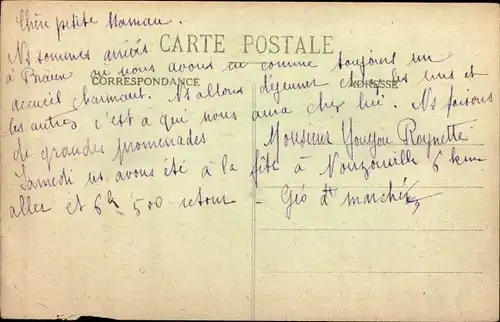 Chère petite Maman.
CARTE POSTALE
CORRESPONDANCE
ADRESSE
Ns sommes arrivés
à où nous avons eu comme toujours un
accueil charmant. Ns allons déjeuner chez les uns et
les autres c'est à qui nous aura chez lui. Ns faisons
de grandes promenades Monsieur
Samedi ns avons été à la fête à Nouzonville 6 km
aller et 6k 500 retour - marchés